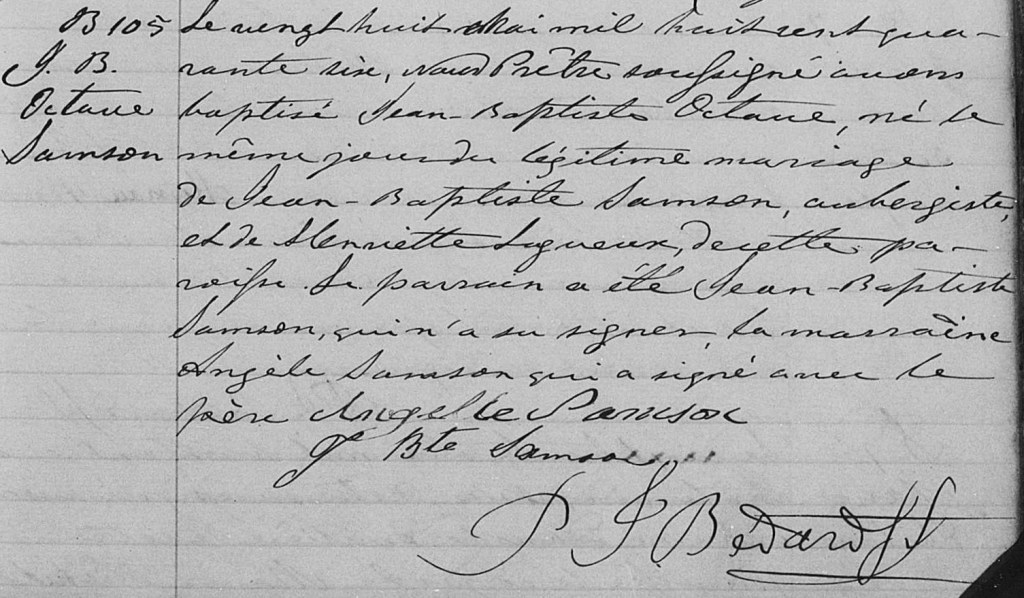 B 105
J. B.
Octave
Samson
Le vengt huit Mai mil huit cent qua-
rante six, Nous Prêtre soussigné avons
baptisé Jean-Baptiste Octave, né le
même jour du légitime mariage
de Jean-Baptiste Samson, aubergiste,
et de Henriette Lagueux, de cette pa-
roisse. Le parrain a été Jean-Baptiste
Samson, qui n'a su signer, la marraine
Angèle Samson qui a signé avec le
père Angelle Samson
Jn Bte Samson
P J. Bedard